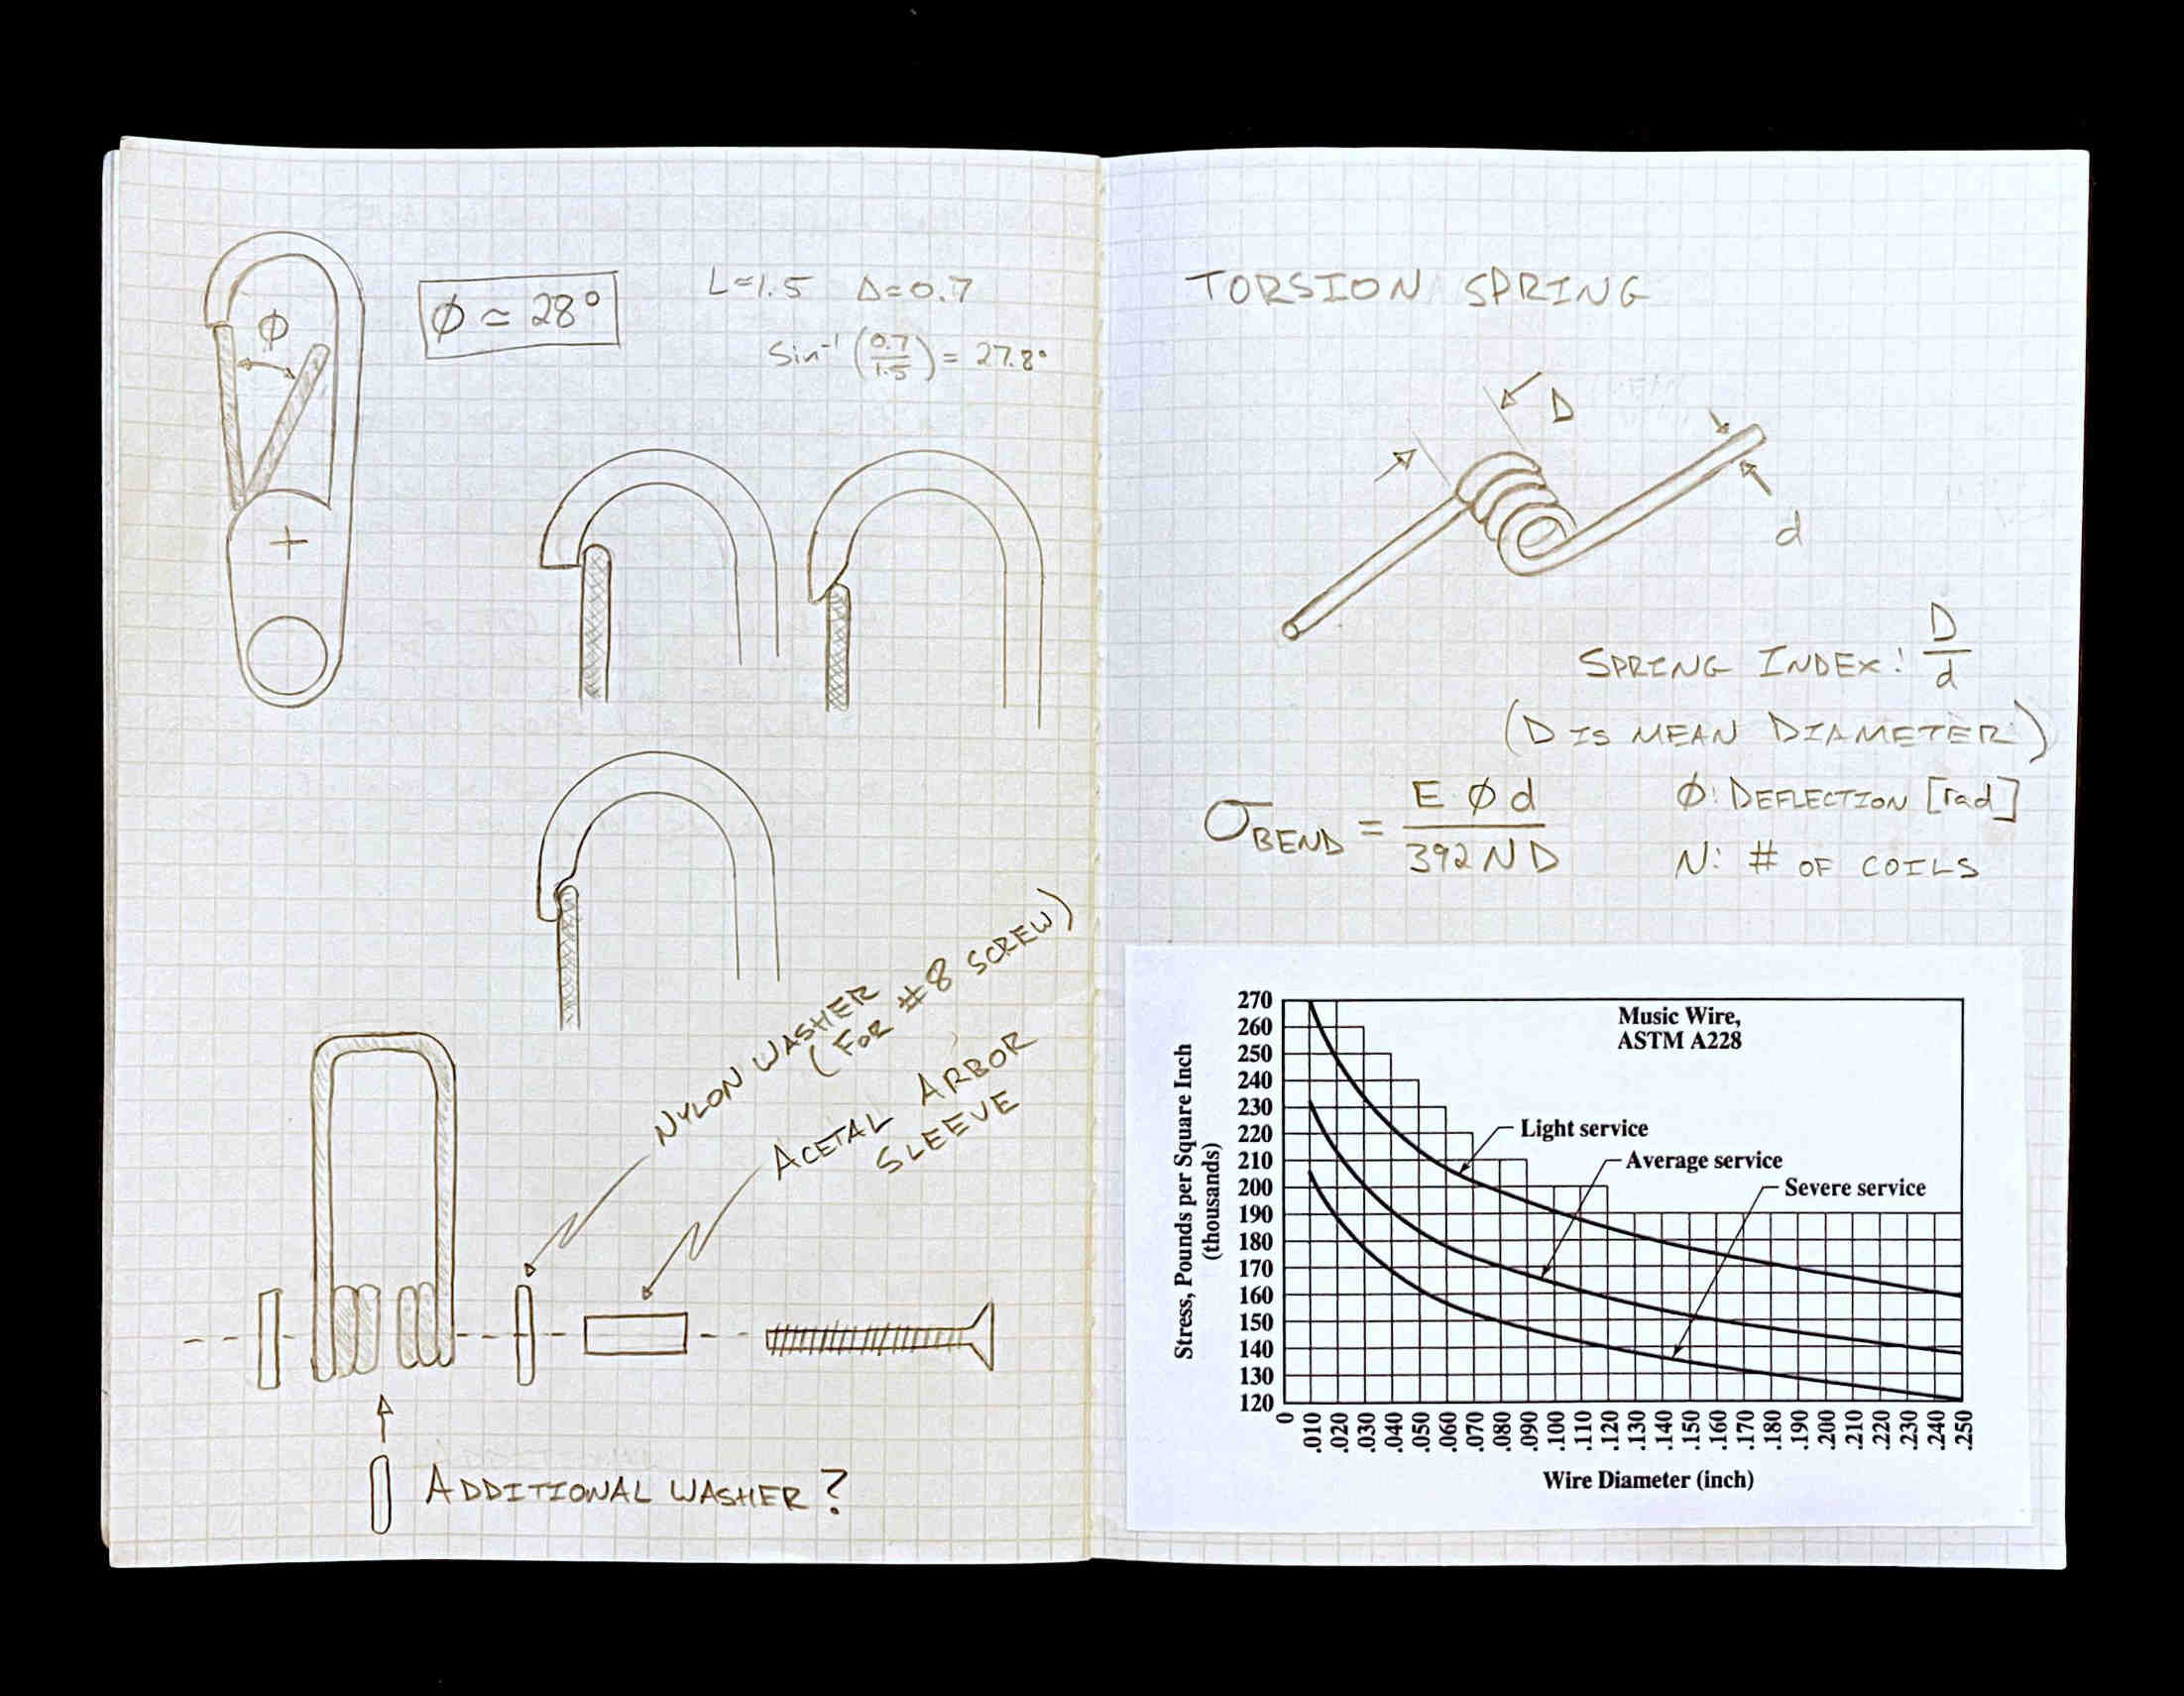 ϕ
ϕ ≃ 28°
L≈1.5 Δ=0.7
Sin⁻¹ (0.7/1.5) = 27.8°
+
NYLON WASHER
(FOR #8 SCREW)
ACETAL ARBOR
SLEEVE
ADDITIONAL WASHER?
TORSION SPRING
D
d
SPRING INDEX: D/d
(D IS MEAN DIAMETER)
σBEND = E ϕ d / 392 N D
ϕ: DEFLECTION [rad]
N: # OF COILS
Music Wire,
ASTM A228
Light service
Average service
Severe service
Stress, Pounds per Square Inch
(thousands)
270
260
250
240
230
220
210
200
190
180
170
160
150
140
130
120
0 .010 .020 .030 .040 .050 .060 .070 .080 .090 .100 .110 .120 .130 .140 .150 .160 .170 .180 .190 .200 .210 .220 .230 .240 .250
Wire Diameter (inch)